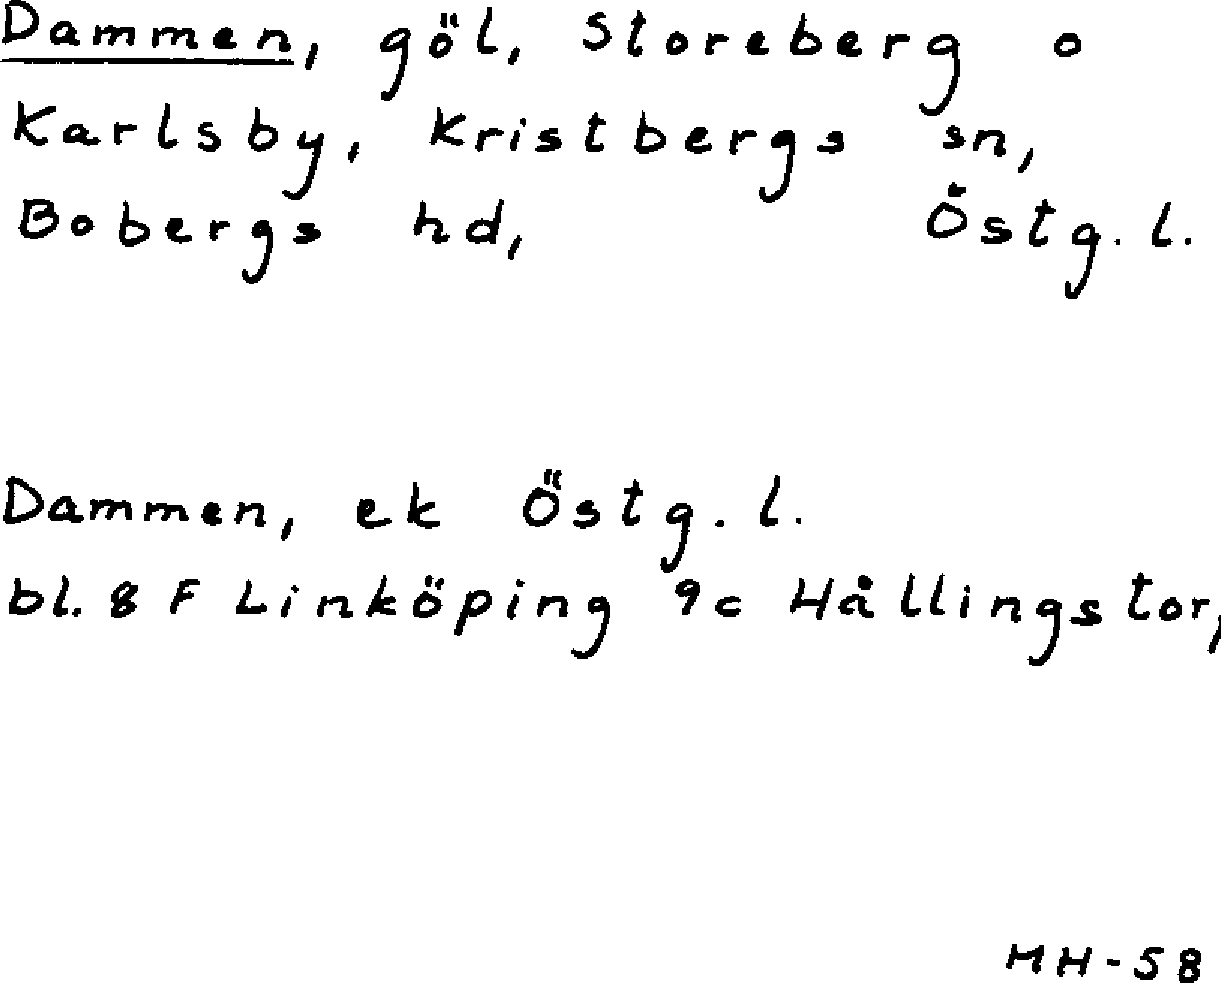 Dammen, göl, Storeberg o
Karlsby, Kristbergs sn,
Bobergs hd, Östg. l.
Dammen, ek Östg. l.
bl. 8 F Linköping 9c Hållingstor,
MH-58